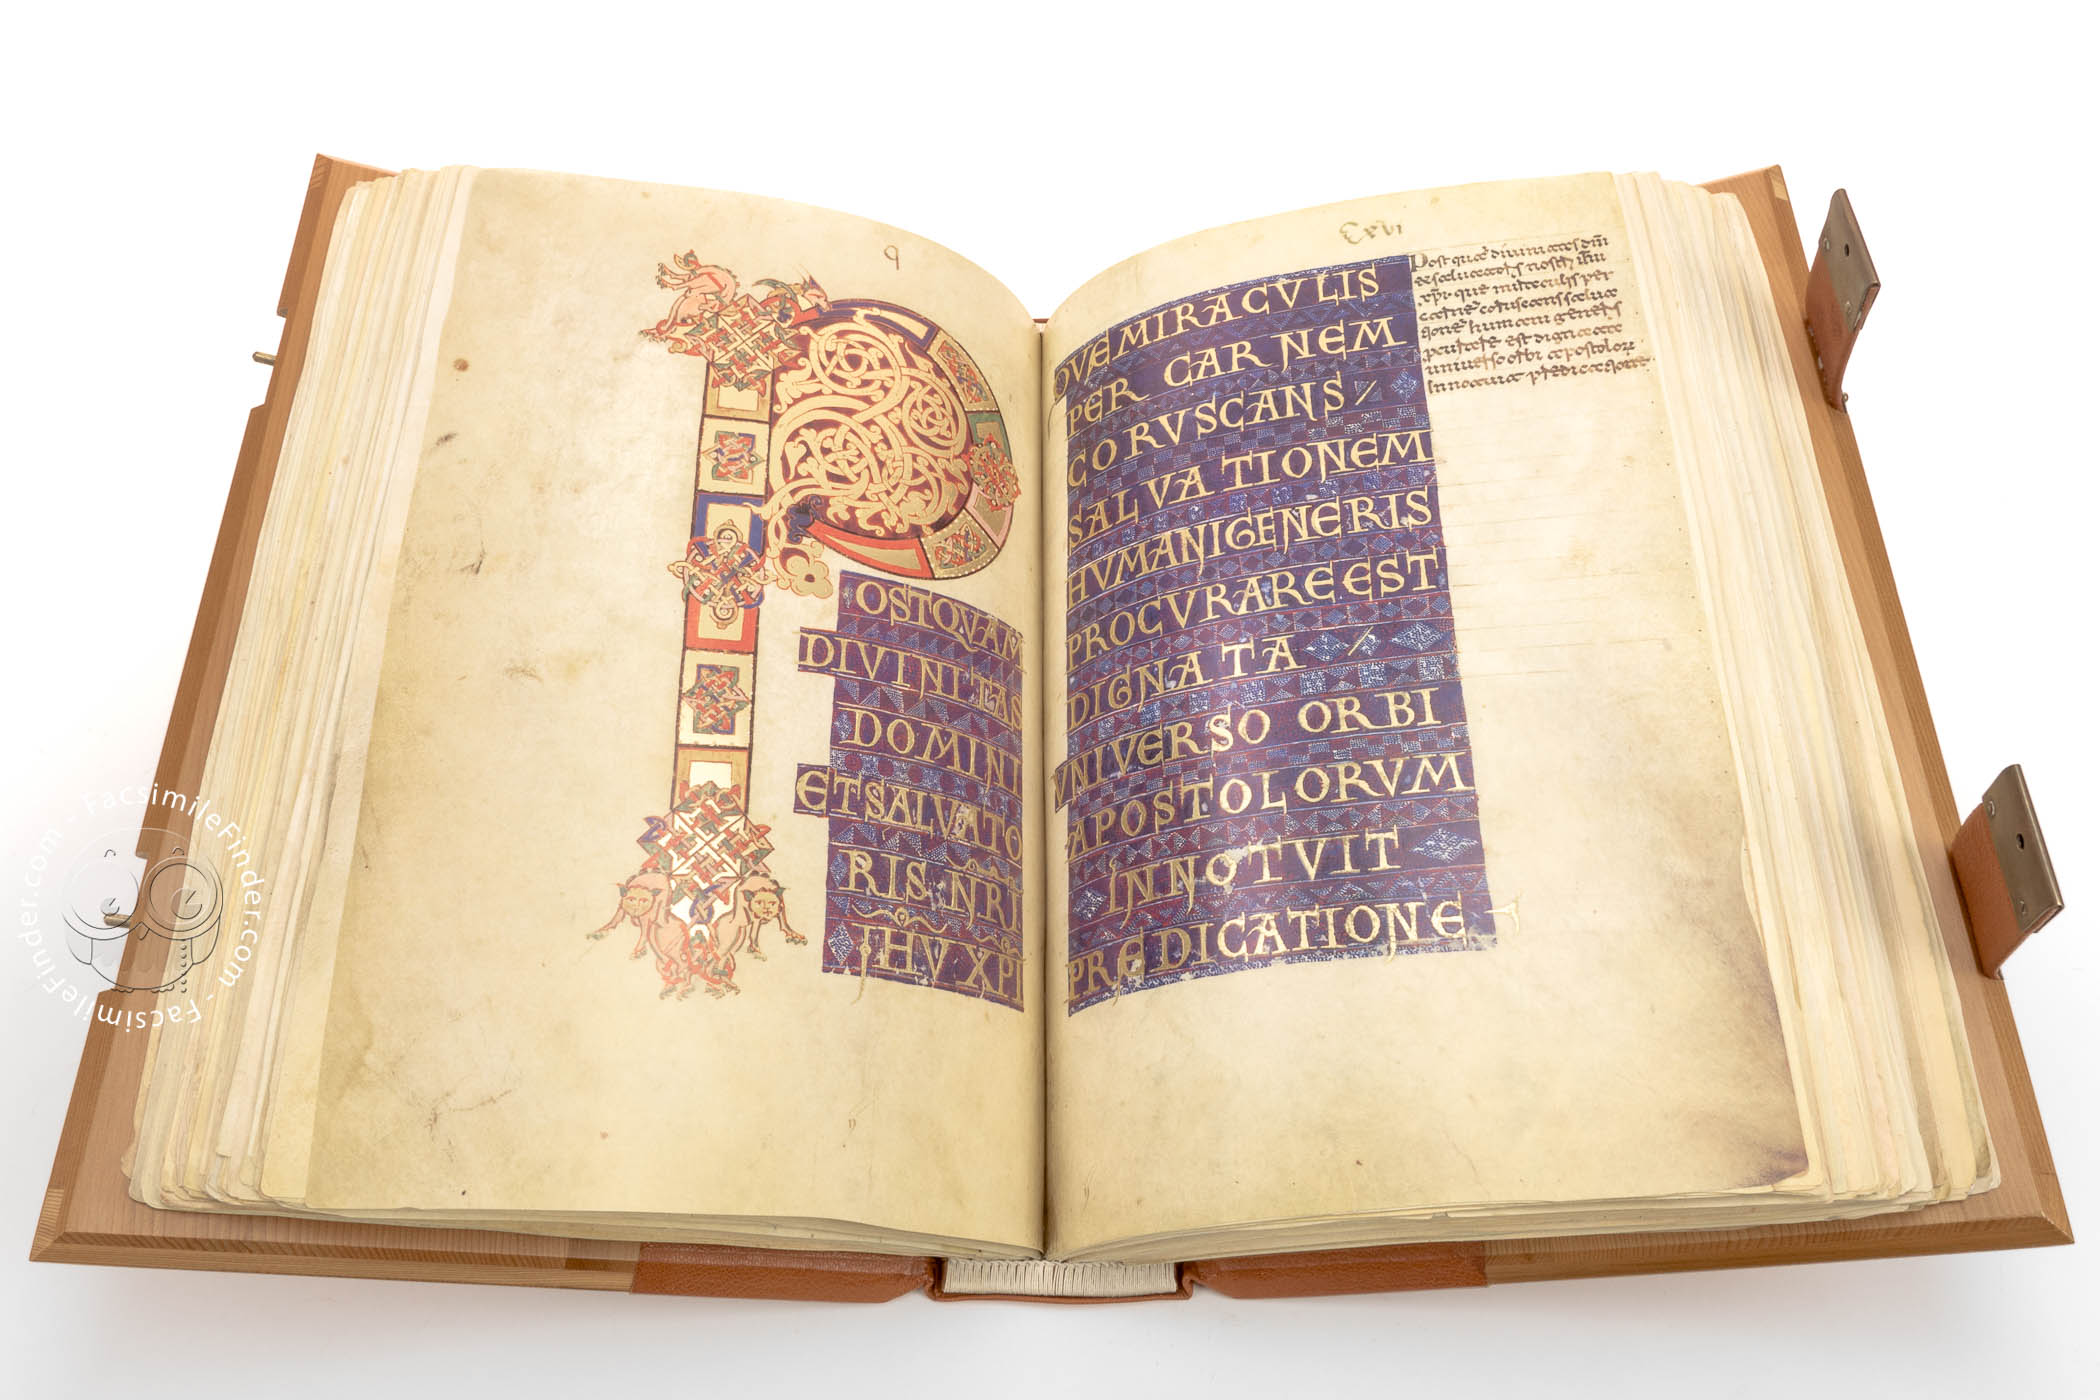 q
P
OSTQVAM
DIVINITAS
DOMINI
ETSALVATO
RIS NRI
IHV XPI
Cxvi
QVE MIRACVLIS
PER CARNEM
CORVSCANS /
SALVATIONEM
HVMANI GENERIS
PROCVRARE EST
DIGNATA /
VNIVERSO ORBI
APOSTOLORVM
INNOTVIT
PRÆDICATIONE
Post quā divinitas dn̄i
et salvatoris nostri ihū
xp̄i que miraculis per
humani generis
est dignata
universo orbi apostolorū
innotuit predicatione
FacsimileFinder.com - FacsimileFinder.com - FacsimileFinder.com